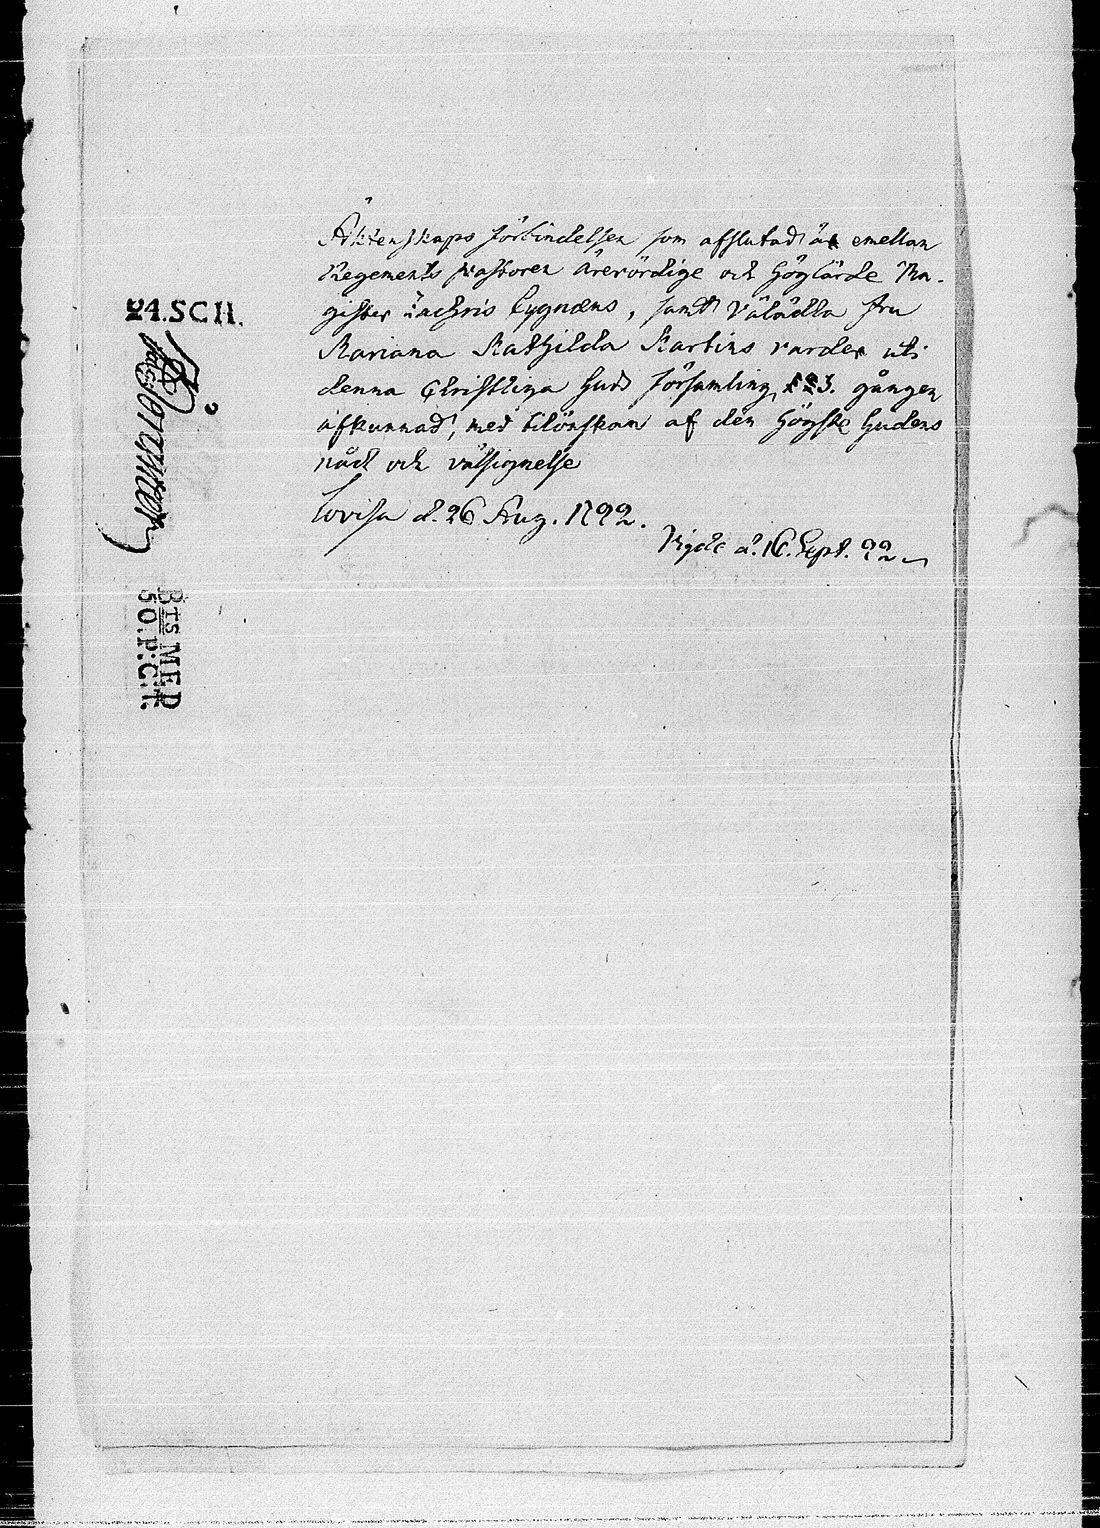 Äktenskaps förbindelsen som afslutad är emellan
Regements Pastoren ärevördige och höglärde Ma-
gister Zachris Cygnæus, samt Välädla Fru
Mariana Mathilda Martins varder uti
denna Christliga Guds församling, 1 2 3. gången
afkunnad, med tilönskan af den högste Gudens
nåd och välsignelse
Lovisa d. 26 Aug. 1792.
Vigde d. 16. Sept. 92
24. SCH.
BTS MER
50. P:C:T.